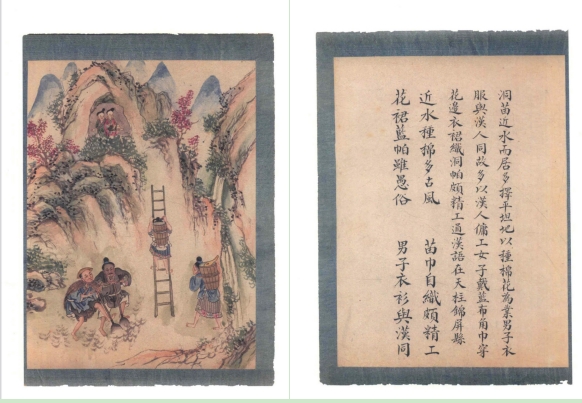 洞苗近水而居多擇平坦地以種棉花為業男子衣
服與漢人同故多以漢人傭工女子戴藍布角巾穿
花邊衣裙織洞帕頗精工通漢語在天柱錦屏縣
近水種棉多古風 苗巾自織頗精工
花裙藍帕雖愚俗 男子衣衫與漢同